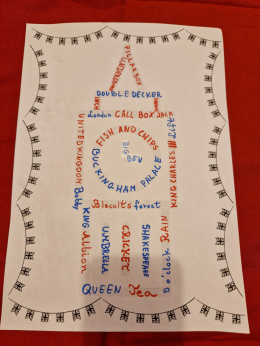 PILLARBOX
DOUBLE DECKER
London CALL BOX JACK
UNITED KINGDOM
Lift
FISH AND CHIPS
BIG
BEN
BUCKINGHAM PALACE
KING CHARLES III
Bobby
Biscuits forest
KING
Albion
UMBRELLA
CRICKET
SHAKESPEARE
RAIN
5 o'clock
QUEEN Tea